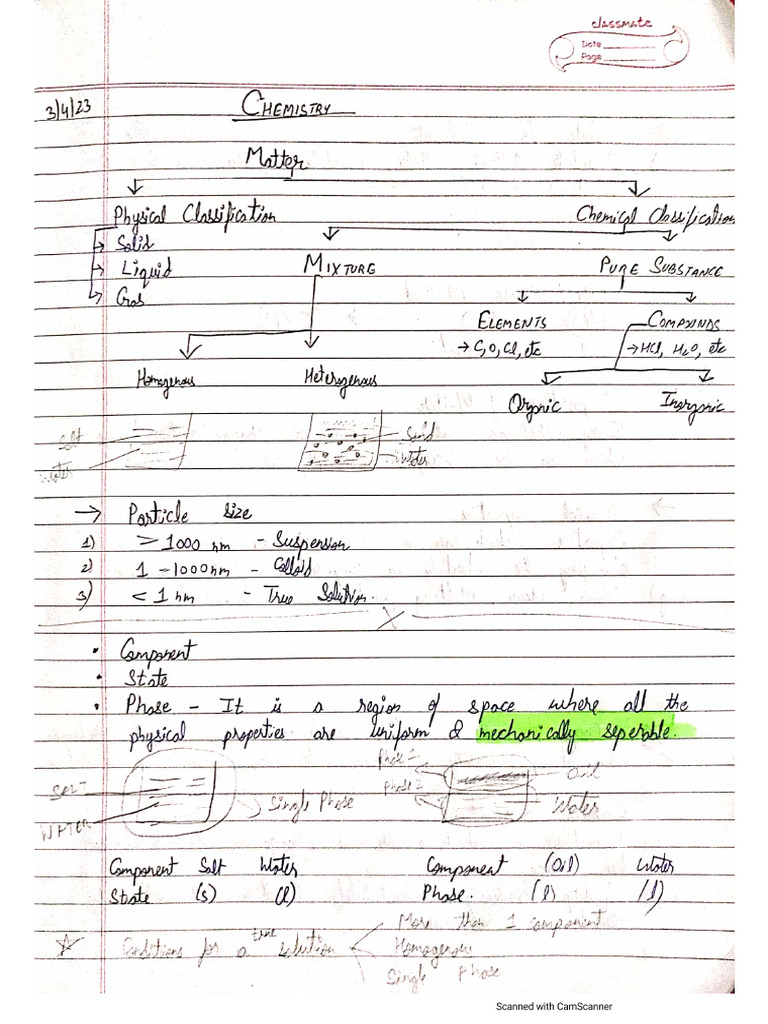 classmate
Date
Page
3/4/23
CHEMISTRY
Matter
Physical Classification Chemical Classification
→ Solid
→ Liquid MIXTURE PURE SUBSTANCE
→ Gas
ELEMENTS COMPOUNDS
→ C, O, Cl, etc → HCl, H2O, etc
Homogenous Heterogenous
Organic Inorganic
Salt Sand
Water Water
→ Particle size
1) ≥ 1000 nm - Suspension
2) 1 - 1000 nm - Colloid
3) < 1 nm - True Solution.
• Component
• State
• Phase - It is a region of space where all the
physical properties are uniform & mechanically seperable.
Phase 1 Oil
SALT Single Phase Phase 2 Water
WATER
Component Salt Water Component (Oil) Water
State (s) (l) Phase. (l) (l)
More than 1 component
☆ Conditions for a true solution Homogenous
Single Phase
Scanned with CamScanner